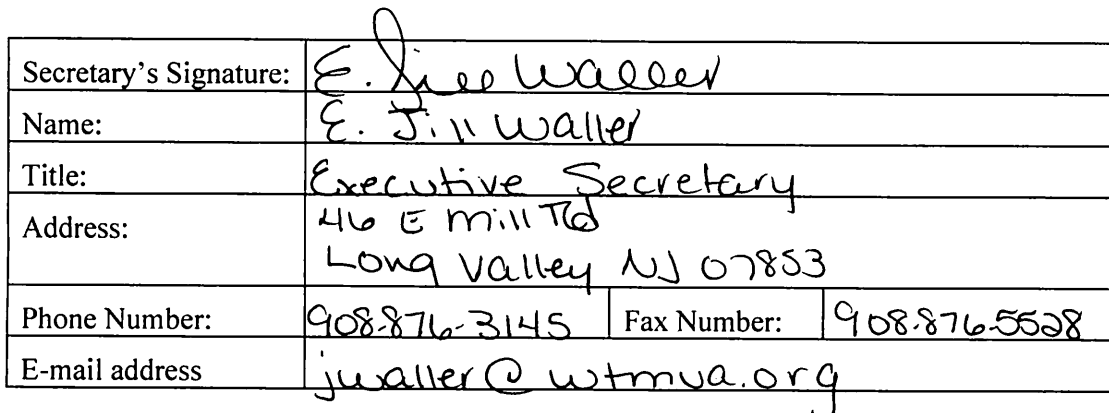 Secretary's Signature: E. Jill Waller
Name: E. Jill Waller
Title: Executive Secretary
Address: 46 E Mill Rd
Long Valley NJ 07853
Phone Number: 908-876-3145 Fax Number: 908-876-5528
E-mail address jwaller@wtmua.org